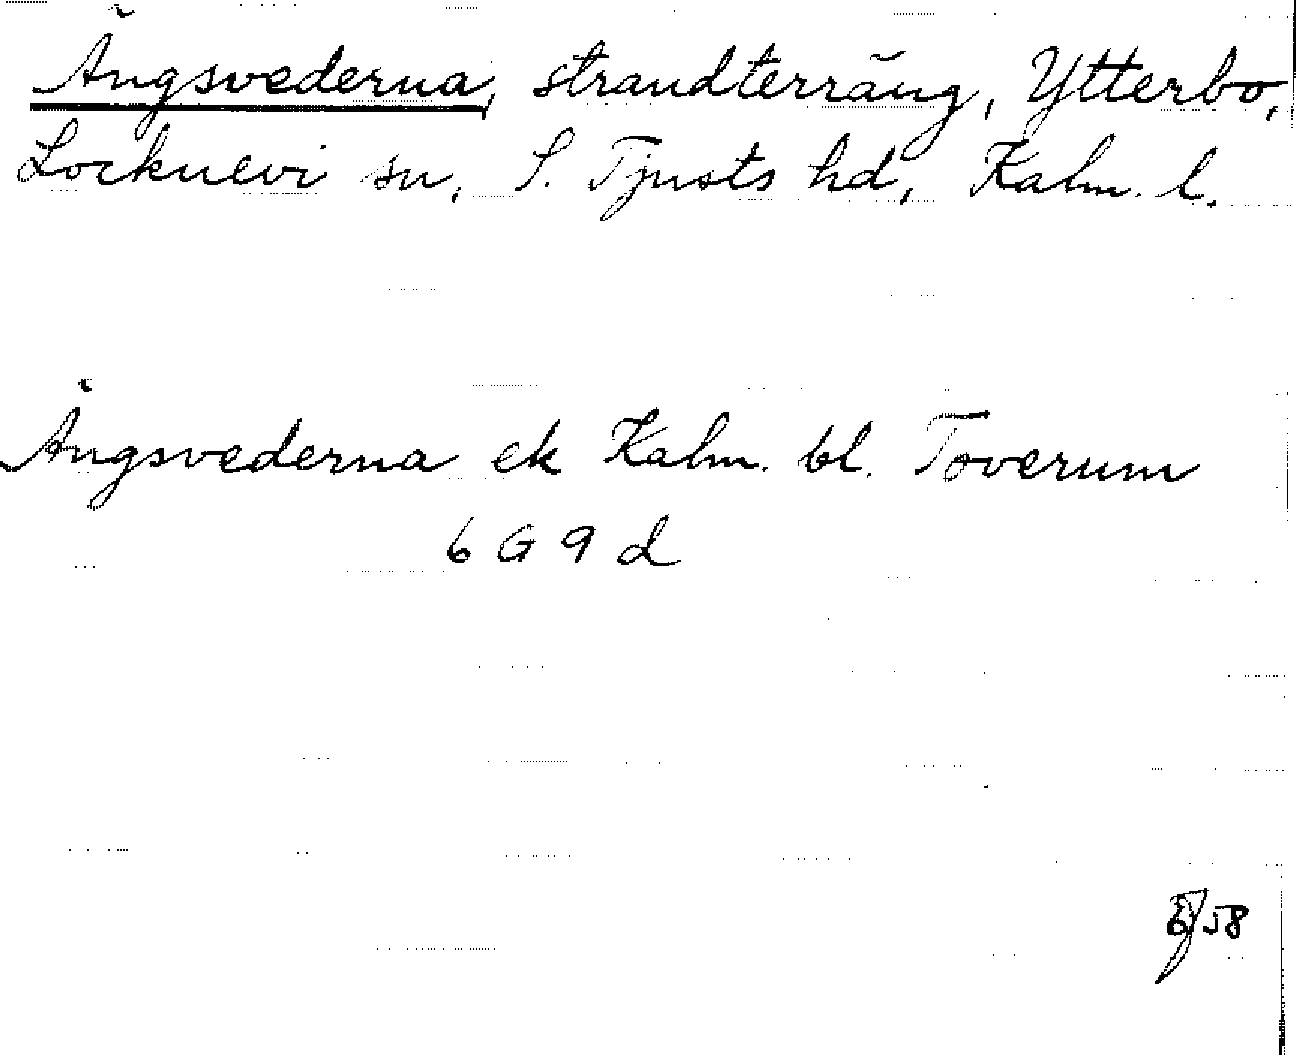 Ängsvederna, strandterräng, Ytterbo,
Locknevi sn, S. Tjusts hd, Kalm. l.
Ängsvederna ek Kalm. bl. Toverum
6 G 9 d
58